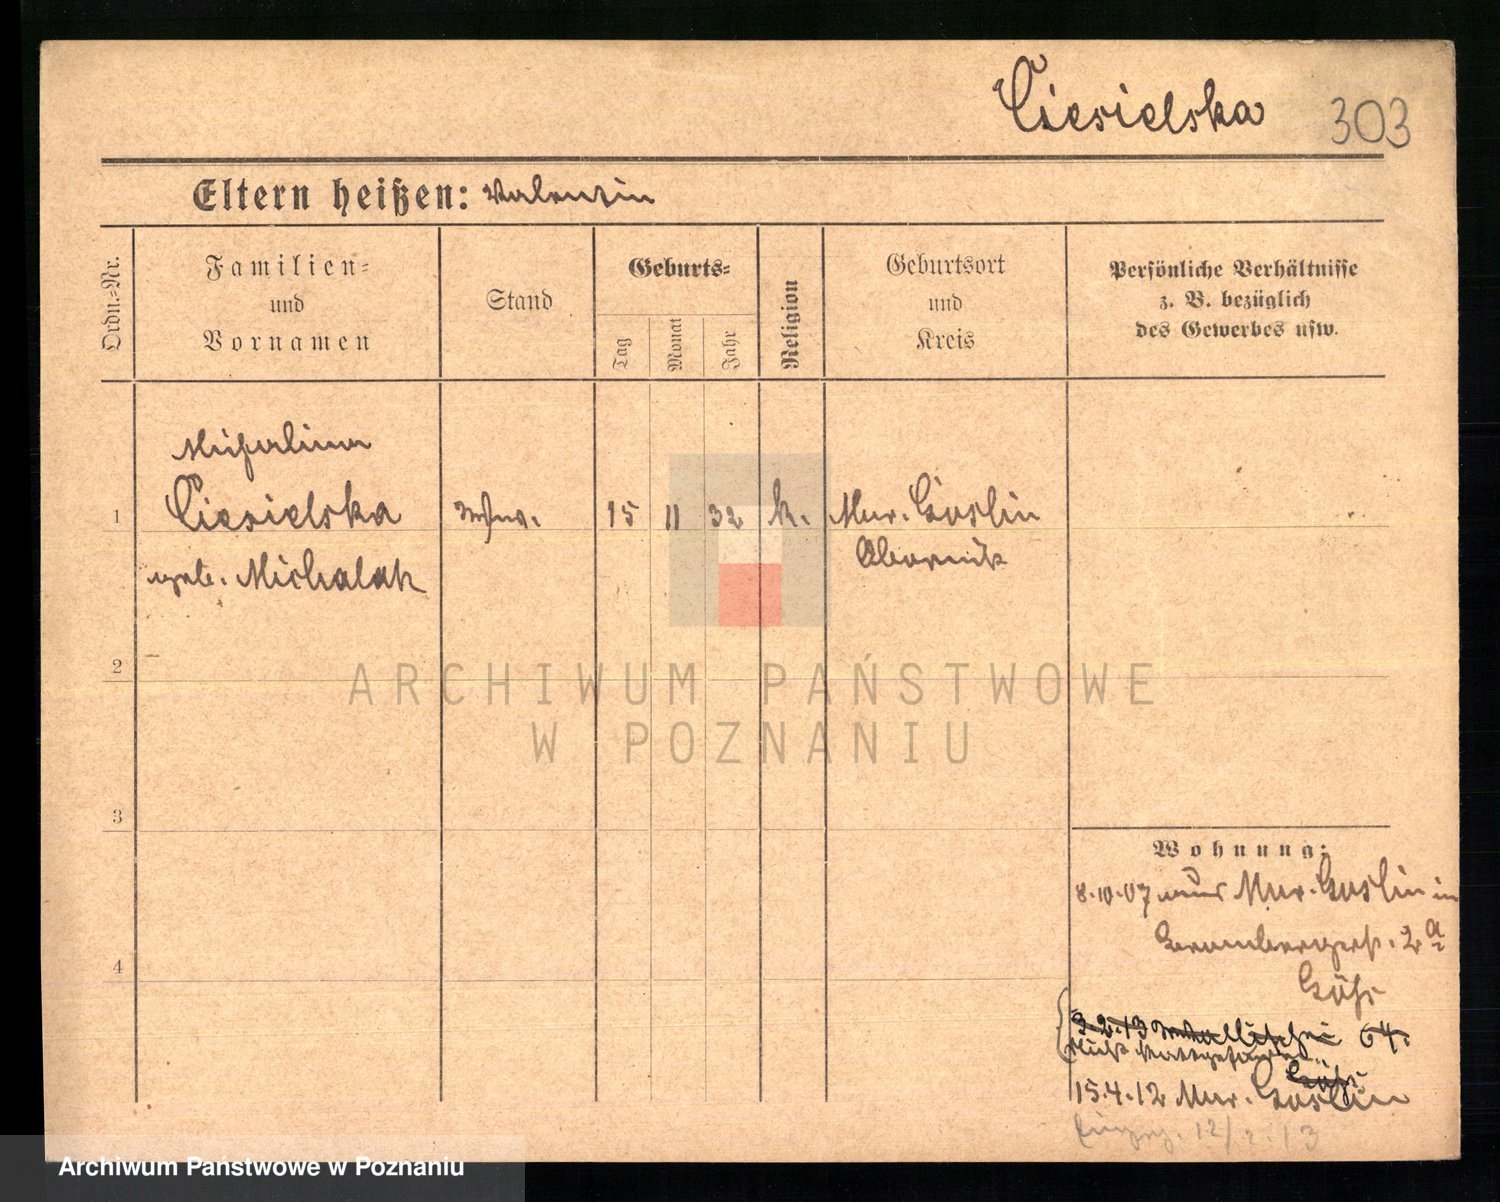 Ciesielska 303
Eltern heißen: Valentin
Ordn.-Nr.
Familien-
und
Vornamen
Stand
Geburts-
Tag
Monat
Jahr
Religion
Geburtsort
und
Kreis
Persönliche Verhältnisse
z. B. bezüglich
des Gewerbes usw.
Michalina
1 Ciesielska Wwe. 15 11 32 k. Mur. Goslin
geb. Michalak Obornik
2
ARCHIWUM PAŃSTWOWE
W POZNANIU
3
Wohnung:
8.10.07 aus Mur. Goslin in
Brombergerst. 2a
4
3.2.13 Wallischei 64.
Nicht stattgefunden
15.4.12 Mur. Goslin
12/2.13
Archiwum Państwowe w Poznaniu